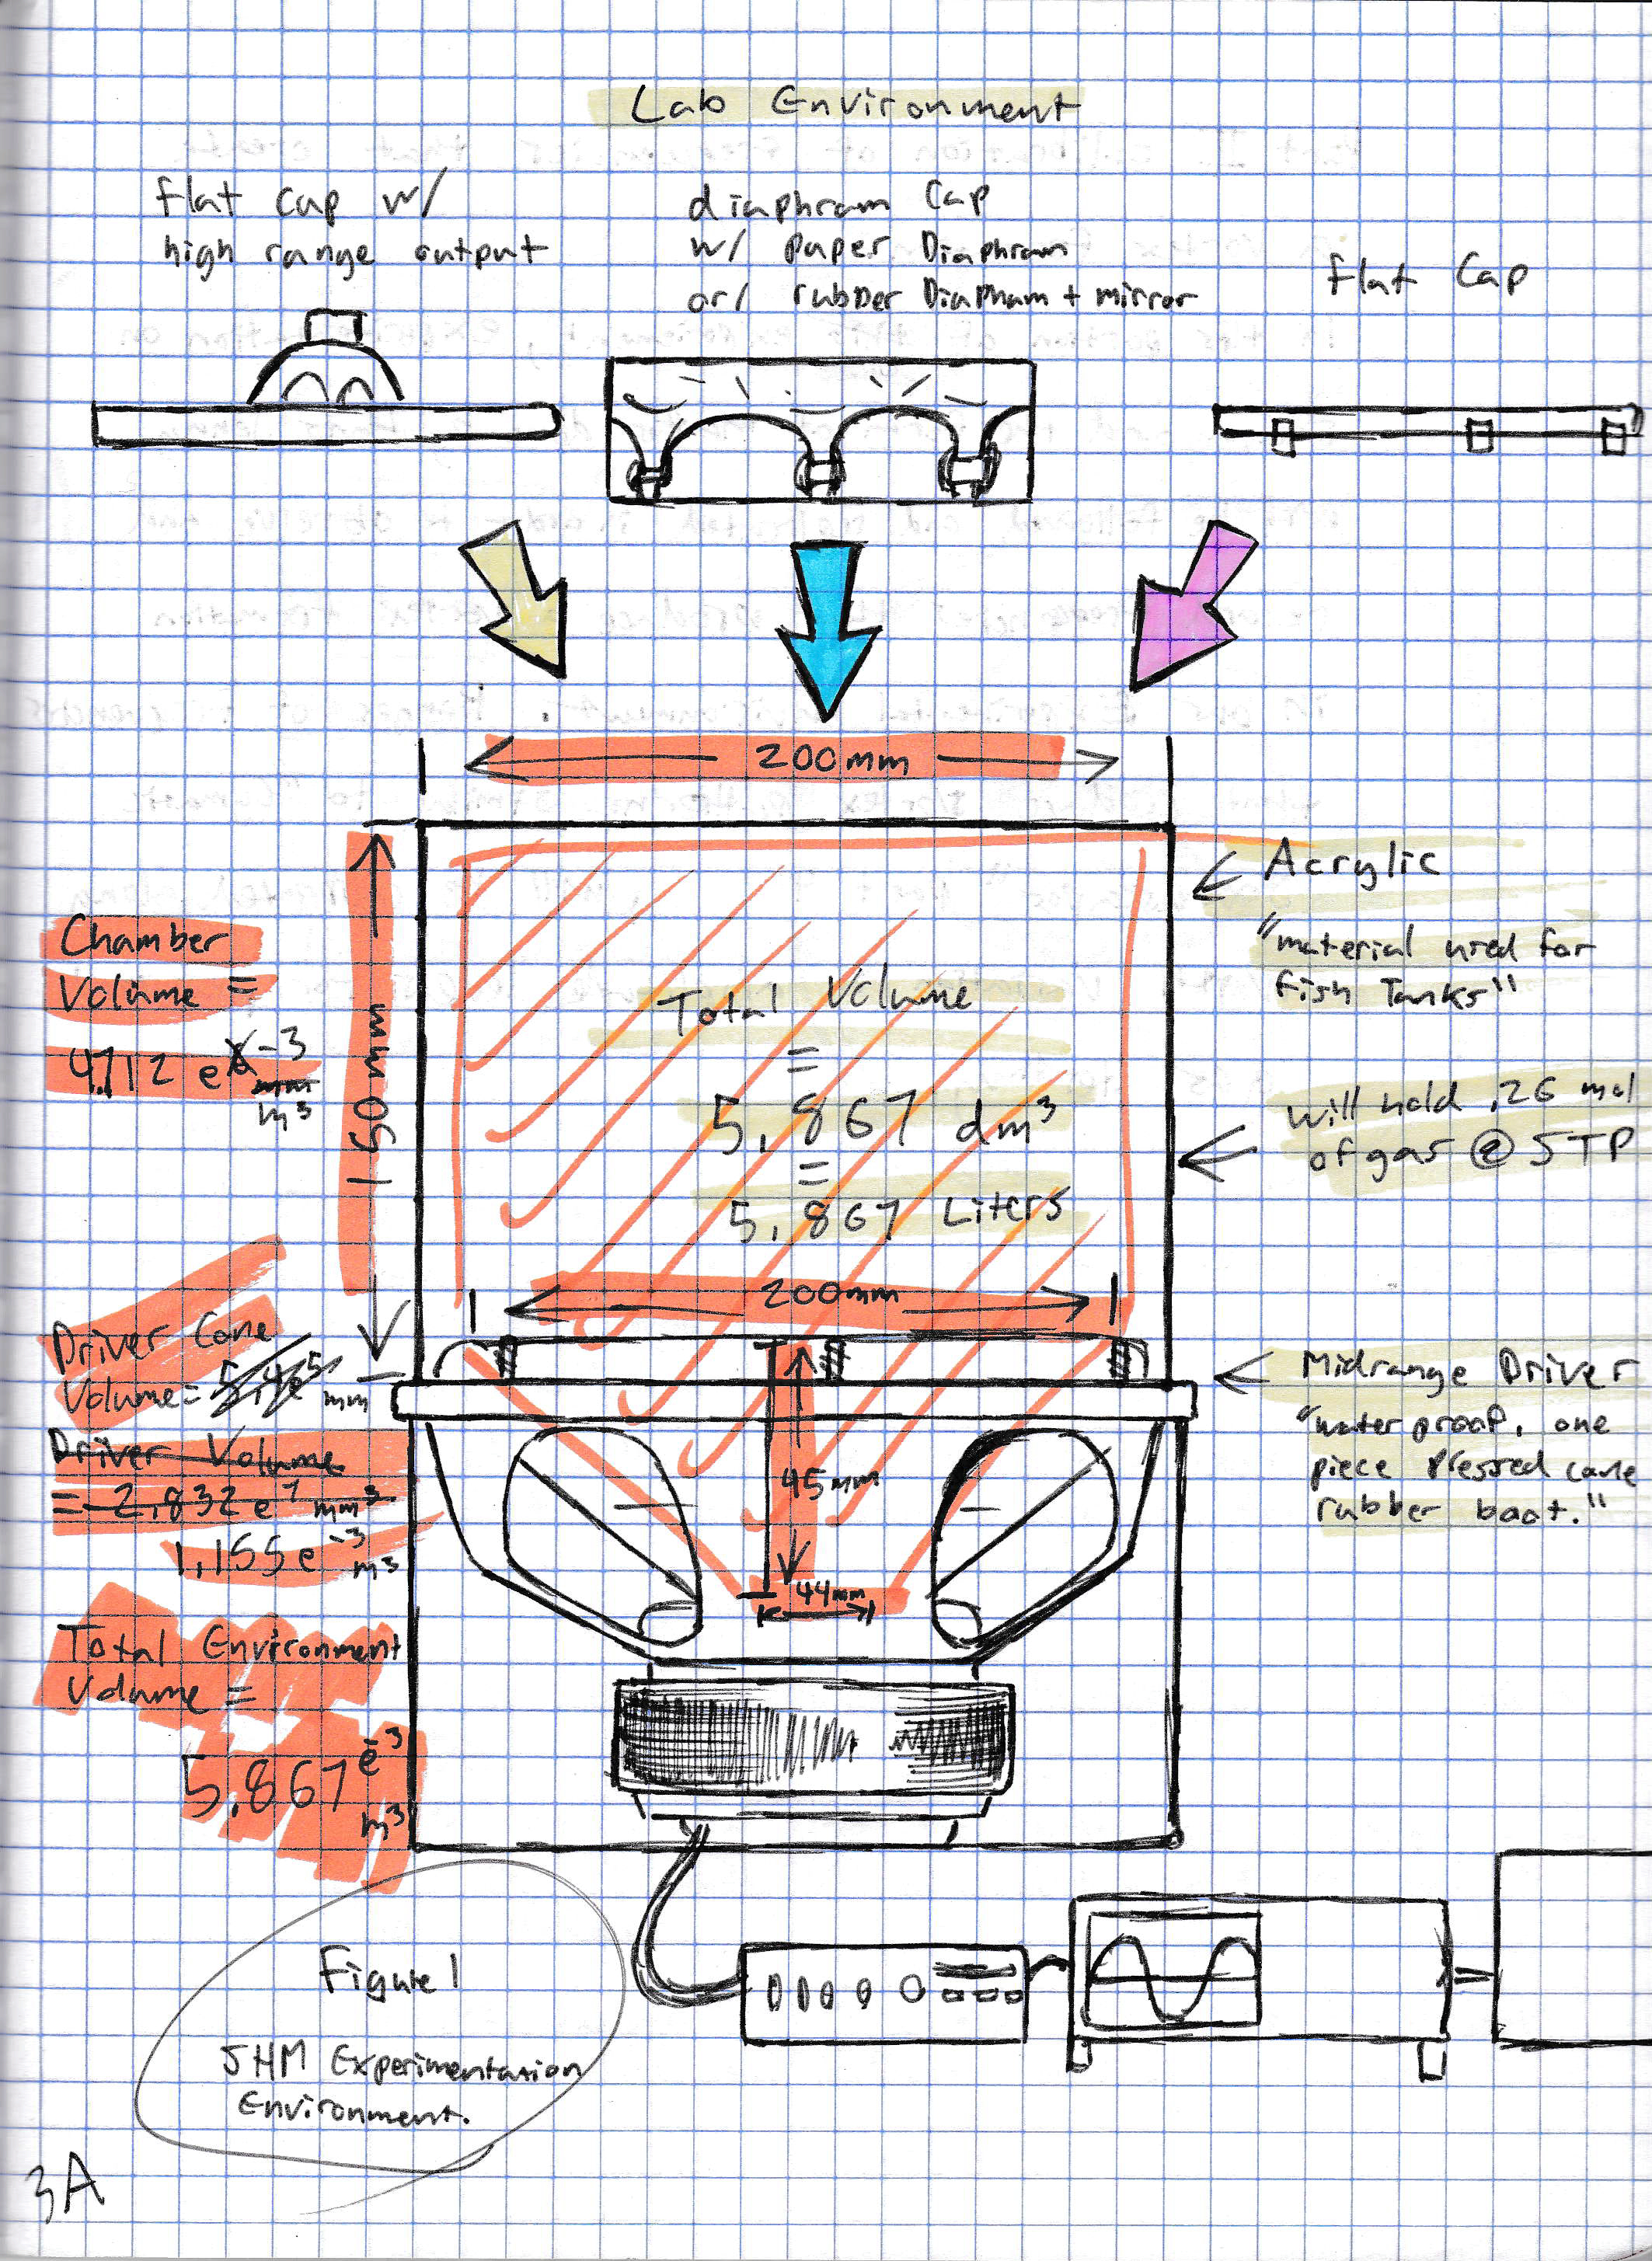 Lab Environment
flat cap w/
high range output
diaphram Cap
w/ paper Diaphram
or/ rubber Diapham + mirror
flat Cap
200mm
Acrylic
"material used for
Fish Tanks"
Chamber
Volume =
4.712 e-3
mm
m³
150mm
Total Volume
=
5.867 dm³
=
5.867 Liters
will hold .26 mol
of gas @ STP
200mm
Driver Cone
Volume = 5.4e5 mm
Driver Volume
= 2.832 e7 mm³
1.155 e-3 m³
45mm
44mm
Midrange Driver
"water proof, one
piece pressed cone
rubber boot."
Total Environment
Volume =
5.867 e-3
m³
Figure 1
SHM Experimentation
Environment.
3A